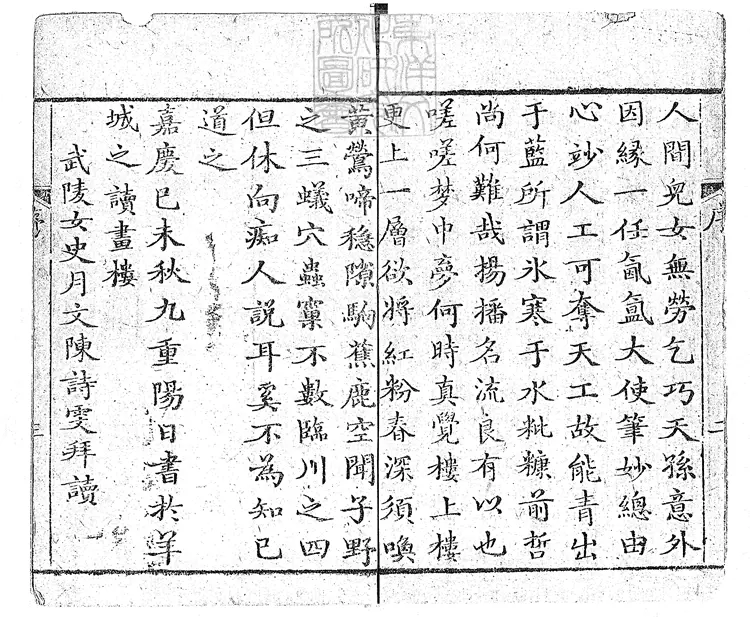 序
二
人間兒女無勞乞巧天孫意外
因緣一任氤氳大使筆妙總由
心竗人工可奪天工故能青出
于藍所謂氷寒于水粃糠前哲
尚何難哉揚播名流良有以也
嗟嗟梦巾夢何時真覺樓上樓
更上一層欲將紅粉春深須喚
黃鶯啼穏隙駒蕉鹿空聞子野
之三蟻穴蟲窠不數臨川之四
但休向痴人説耳奚不為知已
道之
嘉慶己未秋九重陽日書於羊
城之讀畫樓
武陵女史月文陳詩雯拜讀
序